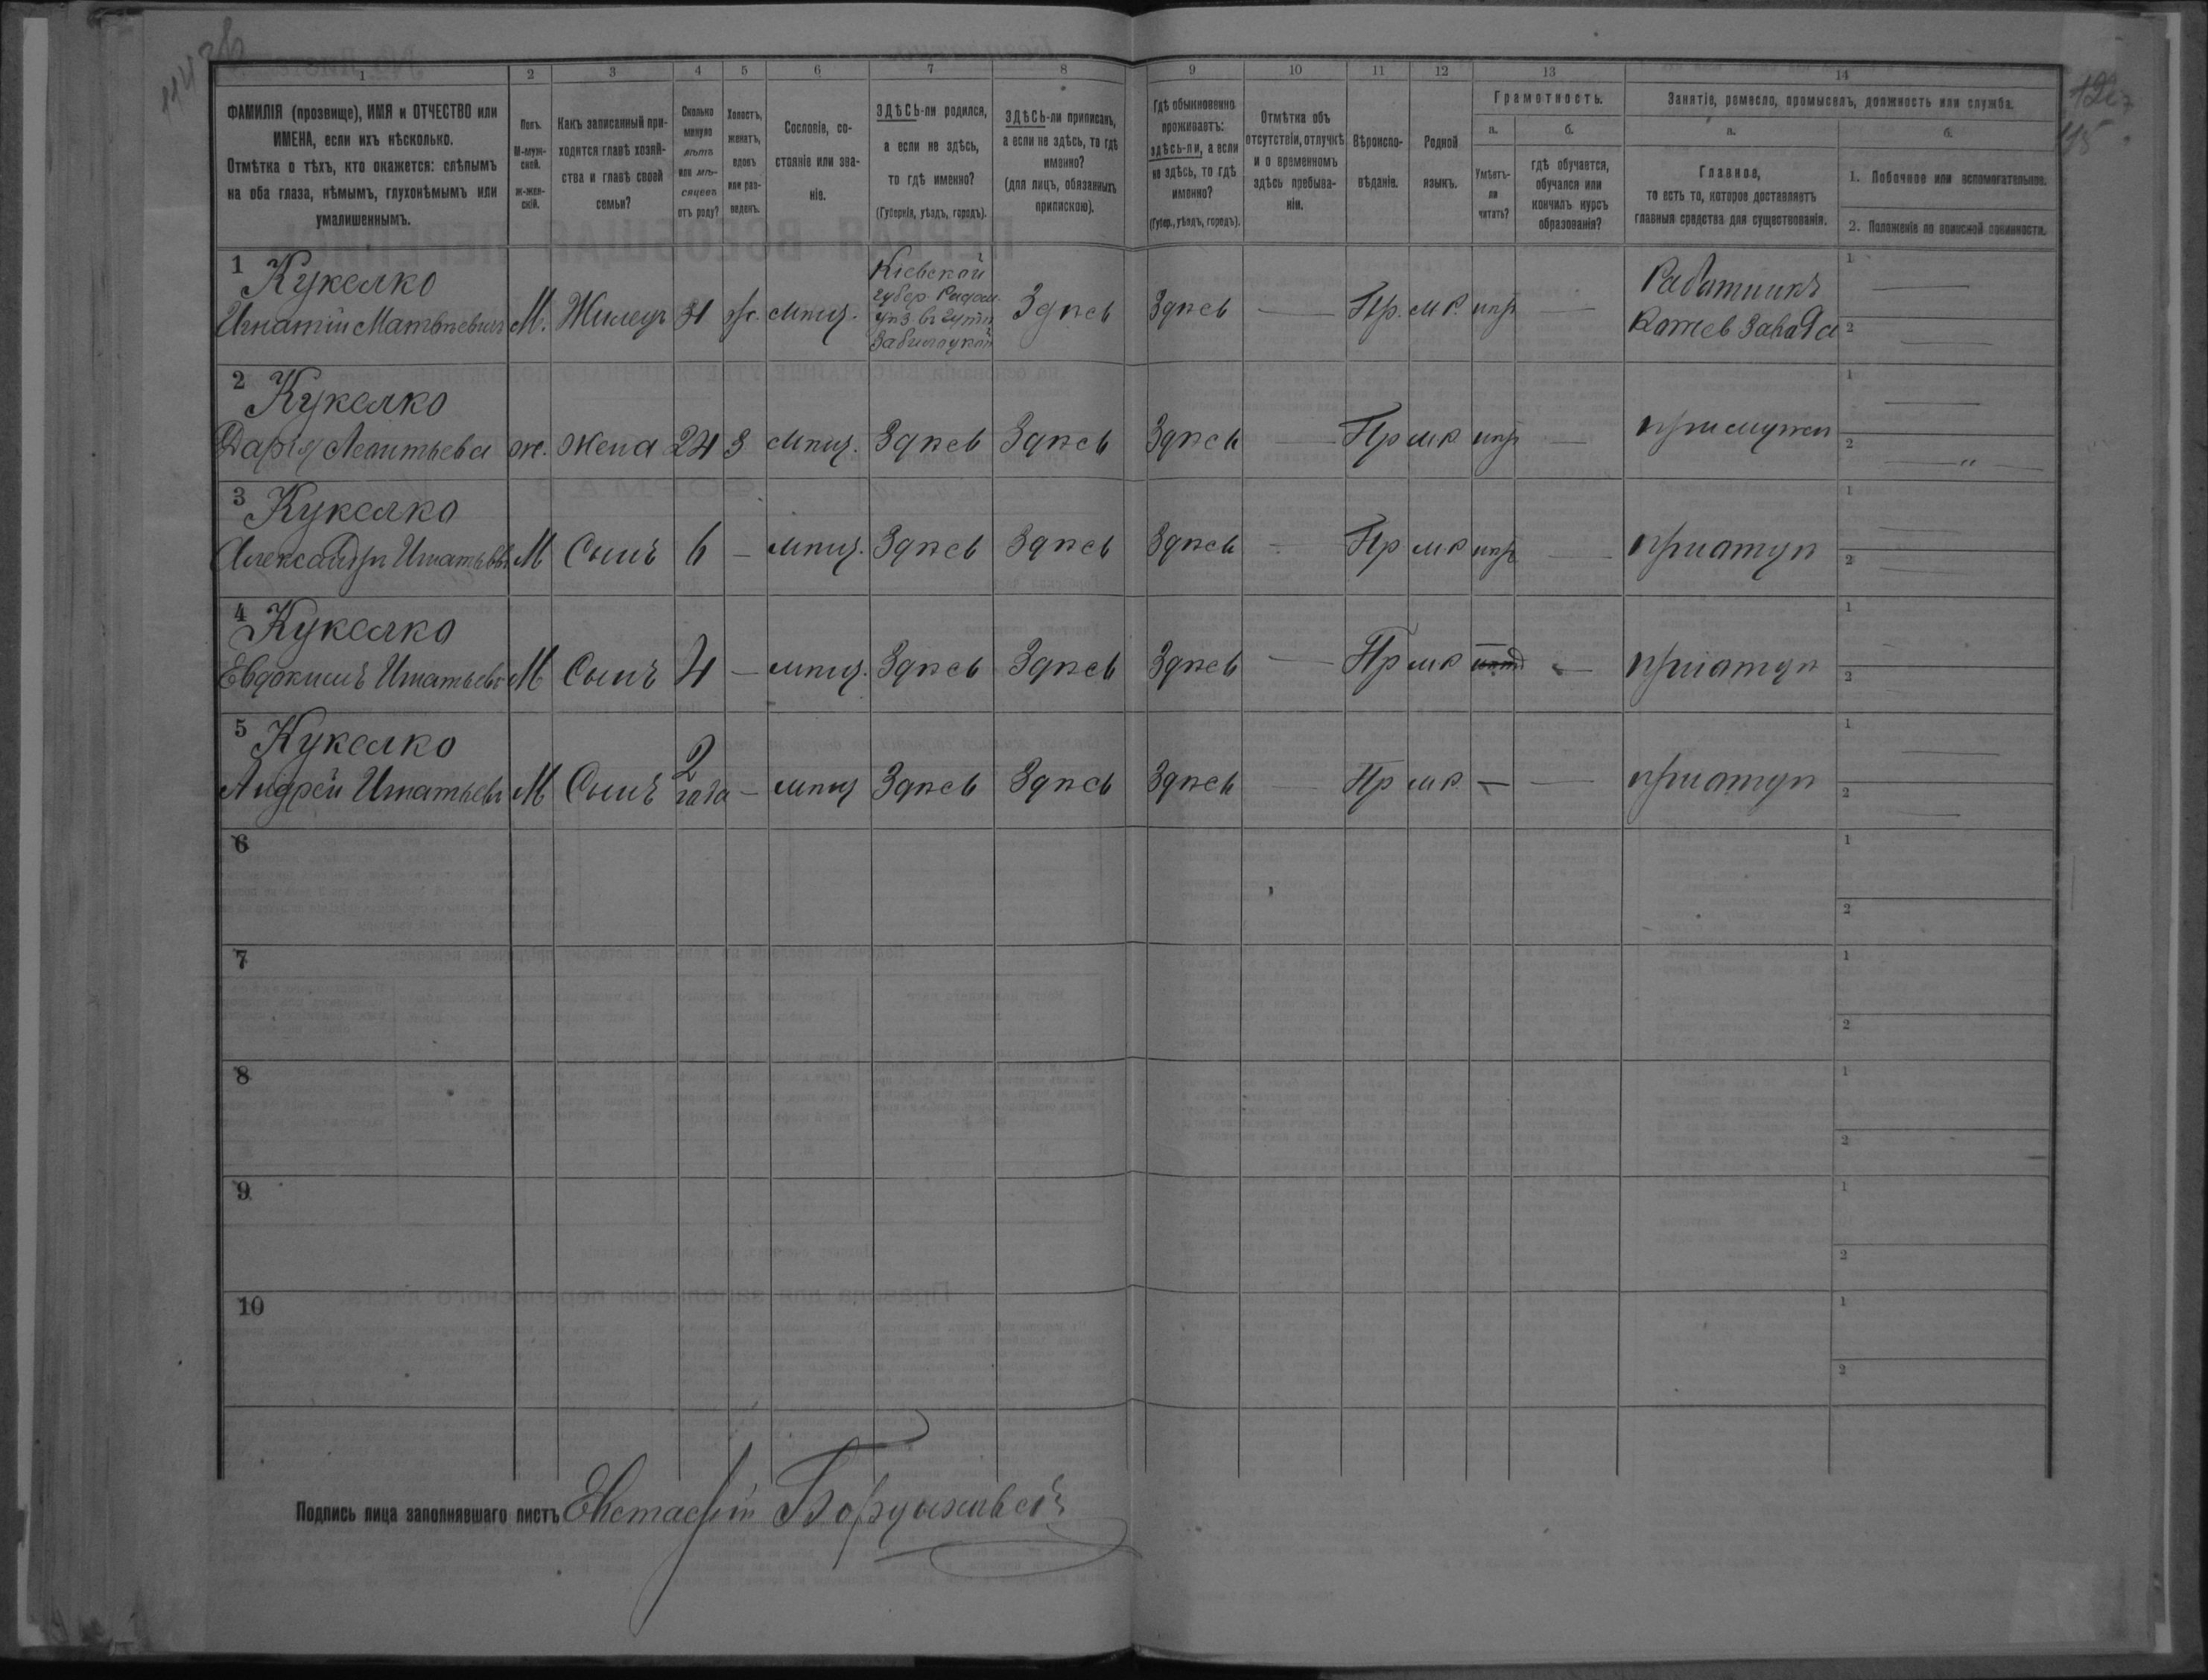 1 2 3 4 5 6 7 8 9 10 11 12 13 14
ФАМИЛІЯ (прозвище), ИМЯ и ОТЧЕСТВО или
ИМЕНА, если ихъ нѣсколько.
Отмѣтка о тѣхъ, кто окажется: слѣпымъ
на оба глаза, нѣмымъ, глухонѣмымъ или
умалишеннымъ.
Полъ.
М-муж-
ской.
Ж-жен-
скій.
Какъ записанный при-
ходится главѣ хозяй-
ства и главѣ своей
семьи?
Сколько
минуло
лѣтъ
или мѣ-
сяцевъ
отъ роду?
Холостъ,
женатъ,
вдовъ
или раз-
веденъ.
Сословіе, со-
стояніе или зва-
ніе.
ЗДѢСЬ-ли родился,
а если не здѣсь,
то гдѣ именно?
(Губернія, уѣздъ, городъ).
ЗДѢСЬ-ли приписанъ,
а если не здѣсь, то гдѣ
именно?
(для лицъ, обязанныхъ
припискою).
Гдѣ обыкновенно
проживаетъ:
здѣсь-ли, а если
не здѣсь, то гдѣ
именно?
(Губер., уѣздъ, городъ).
Отмѣтка объ
отсутствіи, отлучкѣ
и о временномъ
здѣсь пребыва-
ніи.
Вѣроиспо-
вѣданіе.
Родной
языкъ.
Грамотность.
а. б.
Умѣетъ-
ли
читать?
гдѣ обучается,
обучался или
кончилъ курсъ
образованія?
Занятіе, ремесло, промыселъ, должность или служба.
а. б.
Главное,
то есть то, которое доставляетъ
главныя средства для существованія.
1. Побочное или вспомогательное.
2. Положеніе по воинской повинности.
1 Кукелко
Игнатій Матвѣевичъ М. Жилецъ 31 ж. мѣщ. Кіевской губер. Радом. уѣз. въ гутѣ Здѣсь Здѣсь — Пр. м.р. — Работникъ
2 Кукелко
Дарія Леонтьева ж. жена 24 З мѣщ. Здѣсь Здѣсь Здѣсь — Пр мр — при мужѣ
3 Кукелко
Александръ Игнатьевъ М Сынъ 6 — мѣщ. Здѣсь Здѣсь Здѣсь — Пр мр — при отцѣ
4 Кукелко
Евдокимъ Игнатьевъ М Сынъ 4 — мѣщ. Здѣсь Здѣсь Здѣсь — Пр мр — при отцѣ
5 Кукелко
Андрей Игнатьевъ М Сынъ 2 года — мѣщ Здѣсь Здѣсь Здѣсь — Пр мр — — при отцѣ
6
7
8
9
10
Подпись лица заполнявшаго листъ